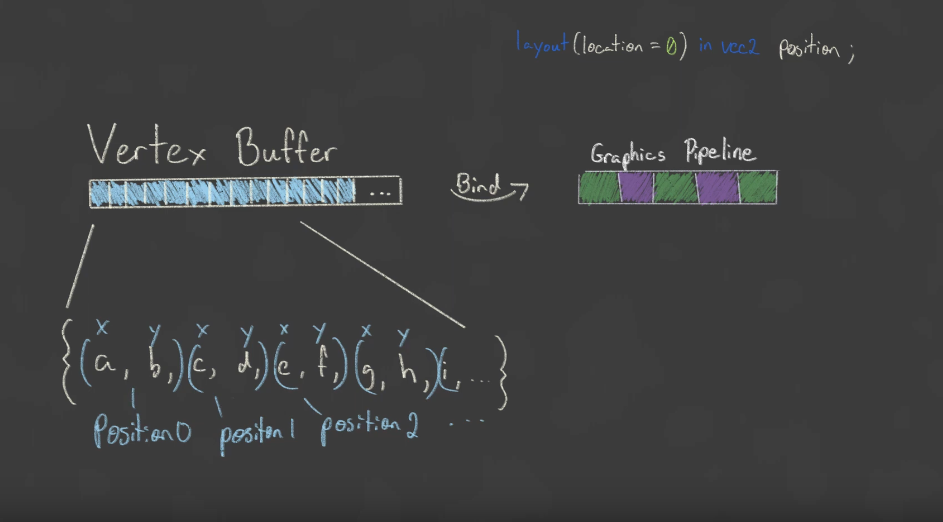 layout(location = 0) in vec2 position;
Vertex Buffer
...
Bind
Graphics Pipeline
x y x y x y x y
{(a, b,)(c, d,)(e, f,)(g, h,)(i, ...}
Position0 positon1 position2 ...